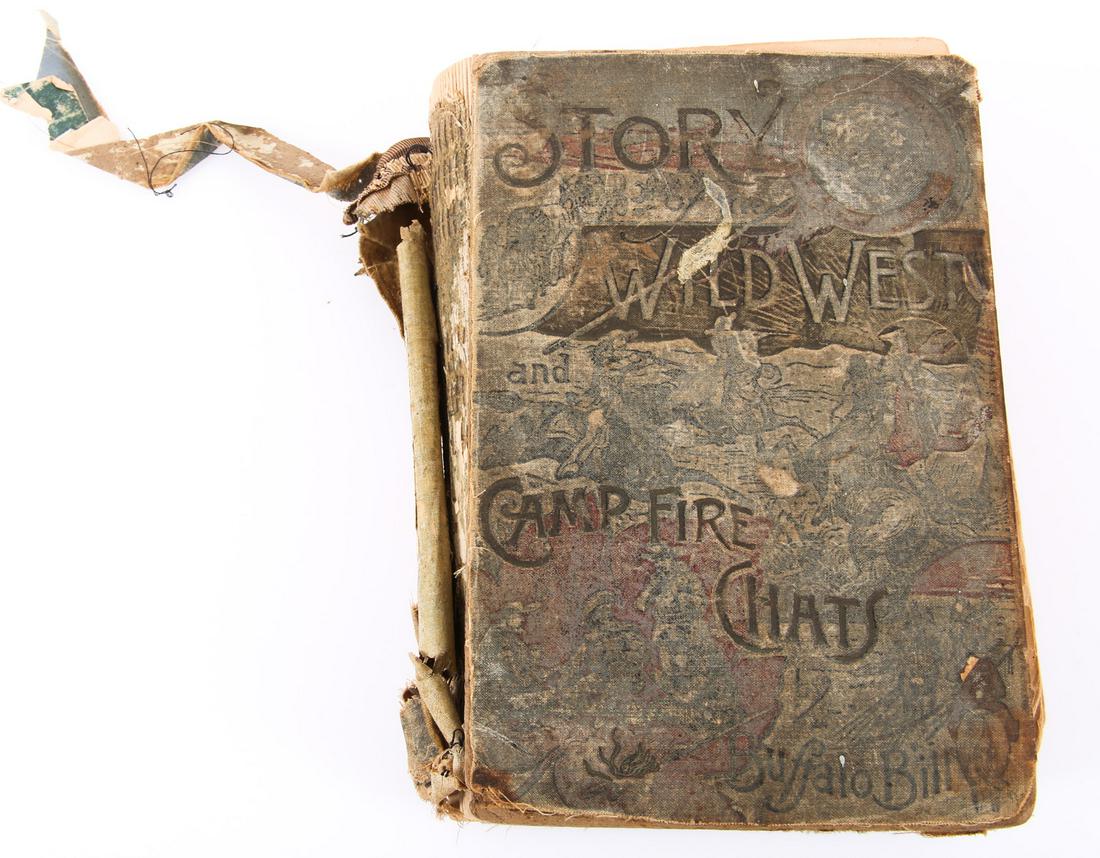 STORY
WILD WEST
and
CAMP-FIRE
CHATS
by
Buffalo Bill